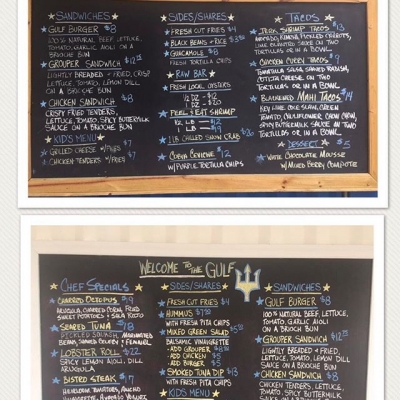 SANDWICHES
GULF BURGER $8
100% NATURAL BEEF, LETTUCE,
TOMATO, GARLIC AIOLI ON A
BRIOCHE BUN
GROUPER SANDWICH $12
LIGHTLY BREADED & FRIED, CRISP
LETTUCE, TOMATO, LEMON DILL,
ON A BRIOCHE BUN
CHICKEN SANDWICH $8
CRISPY FRIED TENDERS,
LETTUCE, TOMATO, SPICY BUTTERMILK
SAUCE ON A BRIOCHE BUN
KID'S MENU
GRILLED CHEESE W/FRIES $7
CHICKEN TENDERS $7
SIDES/SHARES
FRESH CUT FRIES $4
BLACK BEANS + RICE
GUACAMOLE $8
FRESH TORTILLA CHIPS
RAW BAR
FRESH LOCAL OYSTERS
1/2 DZ - $12
1 DZ - $20
PEEL & EAT SHRIMP
1/2 LB - $12
1 LB CHILLED SNOW CRAB
COBIA CEVICHE $12
W/PURPLE TORTILLA CHIPS
TACOS
JERK SHRIMP TACOS $13
TORTILLAS OR IN A BOWL
CHICKEN CURRY TACOS
COTIJA CHEESE ON TWO
TORTILLAS OR IN A BOWL
BLACKENED MAHI TACOS $14
KEY LIME COLE SLAW, GREEN
TOMATO, CAULIFLOWER CHOW CHOW,
SPICY BUTTERMILK SAUCE ON TWO
TORTILLAS OR IN A BOWL
DESSERT $5
WHITE CHOCOLATE MOUSSE
W/MIXED BERRY COMPOTE
WELCOME TO THE GULF
CHEF SPECIALS
CHARRED OCTOPUS $9
ARUGULA, CHARRED CORN, FRIED
SWEET POTATOES + SALSA ROJO
SEARED TUNA $18
PICKLED SQUASH, MARINATED
BEANS, SHAVED CELERY + FENNEL
LOBSTER ROLL $22
SPICY LEMON AIOLI, DILL
ARUGULA
BISTRO STEAK $17
HEIRLOOM TOMATOES,
SIDES/SHARES
FRESH CUT FRIES $4
HUMMUS $7
WITH FRESH PITA CHIPS
MIXED GREEN SALAD
BALSAMIC VINAIGRETTE
- ADD GROUPER
- ADD CHICKEN $5
- ADD BURGER $5
SMOKED TUNA DIP $13
WITH FRESH PITA CHIPS
KID'S MENU
SANDWICHES
GULF BURGER $8
100% NATURAL BEEF, LETTUCE,
TOMATO, GARLIC AIOLI
ON A BRIOCH BUN
GROUPER SANDWICH $12
LIGHTLY BREADED + FRIED,
LETTUCE, TOMATO, LEMON DILL
SAUCE ON A BRIOCHE BUN
CHICKEN SANDWICH $8
CHICKEN TENDERS, LETTUCE,
TOMATO, SPICY BUTTERMILK
SAUCE ON A BRIOCHE BUN